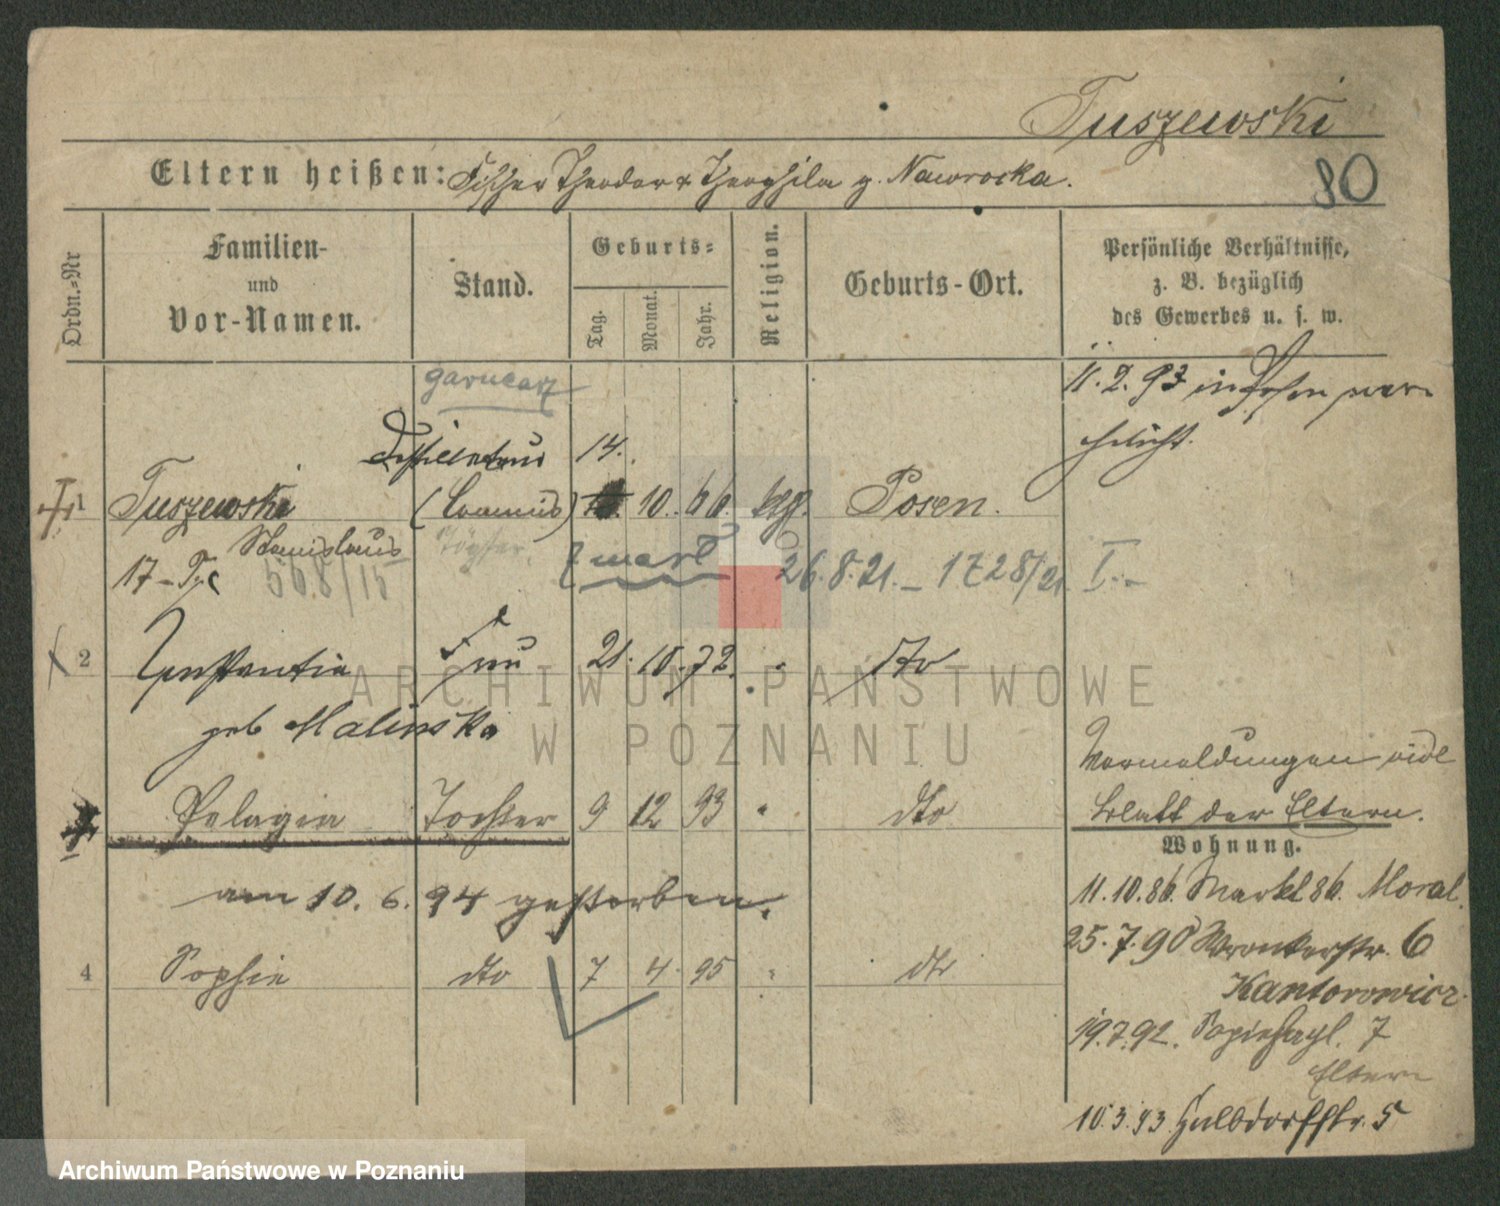 Tuszewski
Eltern heißen: Tischler Theodor & Theophila g. Nawrocka.
80
Ordn.=Nr
Familien-
und
Vor-Namen.
Stand.
Geburts=
Tag.
Monat.
Jahr.
Religion.
Geburts-Ort.
Persönliche Verhältnisse,
z. B. bezüglich
des Gewerbes u. s. w.
garncarz
11. 2. 93 in Posen ver-
ehelicht.
Destillateur 14.
1 Tuszewski (Commis) 10. 66. ktg. Posen.
Stanislaus Töpfer
568/15
umarł 26. 8. 21. – 1728/21. I. –
2 Constantia Frau 21. 10. 72. " dto
geb Malinska
Vormeldungen vide
Blatt der Eltern.
Pelagia Tochter 9 12 93 " dto
Wohnung.
am 10. 6. 94 gestorben.
11. 10. 86. Markt 86. Moral.
25. 7. 90 Wronkerstr. 6
Kantorowicz.
4 Sophie dto 7 4. 95 " dto
19. 7. 92. Sapiehapl. 7
Eltern
10. 3. 93. Halbdorfstr. 5
ARCHIWUM PAŃSTWOWE
W POZNANIU
Archiwum Państwowe w Poznaniu